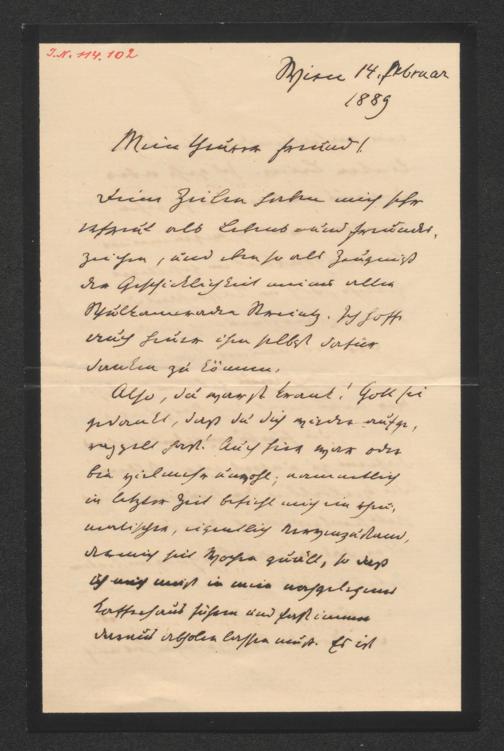 I.N. 114.102
Wien 14. Februar
1889
Mein theurer Freund!
Deine Zeilen haben mich sehr
erfreut als Lebens- und Freundes-
zeichen, und ebenso als Zeugniß
der Geschicklichkeit meines alten
Schulkameraden Streintz. Ich hoffe
auch heuer ihm selbst dafür
danken zu können.
Also, du warst krank! Gott sei
gedankt, daß du dich wieder aufge-
rappelt hast! Auch hier war oder
bin vielmehr unwohl; namentlich
in letzter Zeit befiehl mich ein rheu-
matischer, eigentlich Nervenzustand,
der mich seit Wochen quält, so daß
ich mich meist in mein nahegelegenes
Kaffeehaus führen und fast immer
daraus abholen lassen muß. Es ist